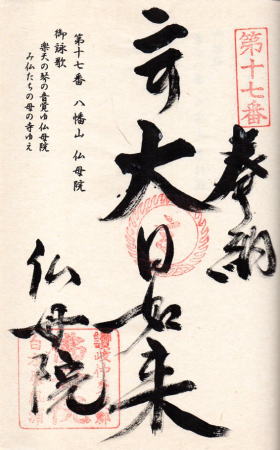 第十七番
奉納
大日如来
仏母院
第十七番 八幡山 仏母院
御詠歌
楽天の琴の音覚ゆ仏母院
み仏たちの母の寺ゆえ